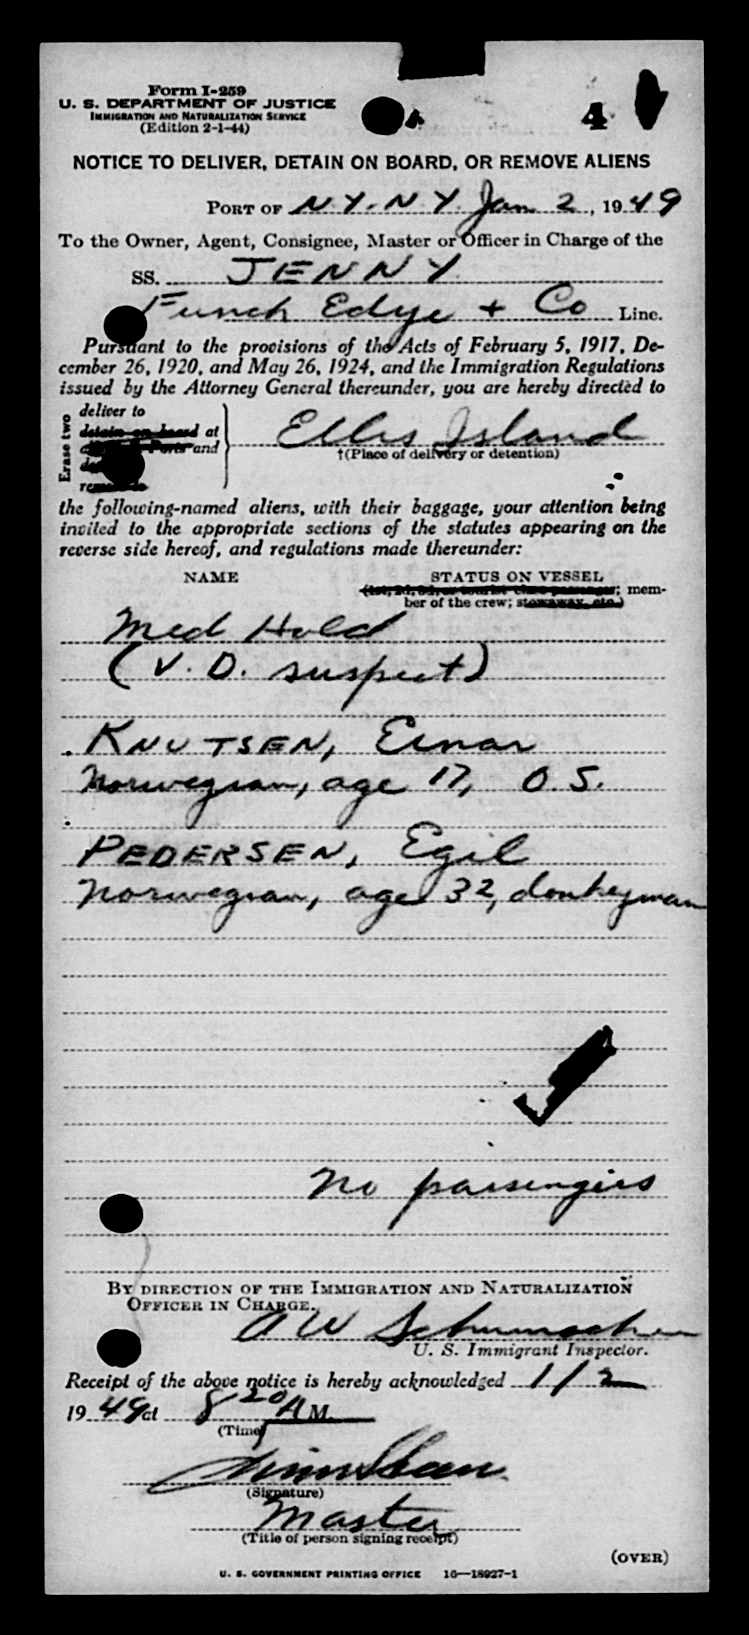 Form I-259
U. S. DEPARTMENT OF JUSTICE
IMMIGRATION AND NATURALIZATION SERVICE
(Edition 2-1-44)
4
NOTICE TO DELIVER, DETAIN ON BOARD, OR REMOVE ALIENS
PORT OF N.Y. N.Y. Jan 2, 1949
To the Owner, Agent, Consignee, Master or Officer in Charge of the
SS. JENNY
Funch Edye + Co Line.
Pursuant to the provisions of the Acts of February 5, 1917, De-
cember 26, 1920, and May 26, 1924, and the Immigration Regulations
issued by the Attorney General thereunder, you are hereby directed to
Erase two
deliver to
detain on board at
and
Ellis Island
†(Place of delivery or detention)
the following-named aliens, with their baggage, your attention being
invited to the appropriate sections of the statutes appearing on the
reverse side hereof, and regulations made thereunder:
NAME STATUS ON VESSEL
(1st, 2d, 3d, or tourist class passenger; mem-
ber of the crew; stowaway, etc.)
Med Hold
(V. D. suspect)
KNUTSEN, Einar
Norwegian, age 17, O.S.
PEDERSEN, Egil
Norwegian, age 32, donkeyman
No passengers
BY DIRECTION OF THE IMMIGRATION AND NATURALIZATION
OFFICER IN CHARGE.
A W Schumacher
U. S. Immigrant Inspector.
Receipt of the above notice is hereby acknowledged 1/2
1949 at 8 20 A M.
(Time)
(Signature)
Master
(Title of person signing receipt)
(OVER)
U. S. GOVERNMENT PRINTING OFFICE 16—18927-1